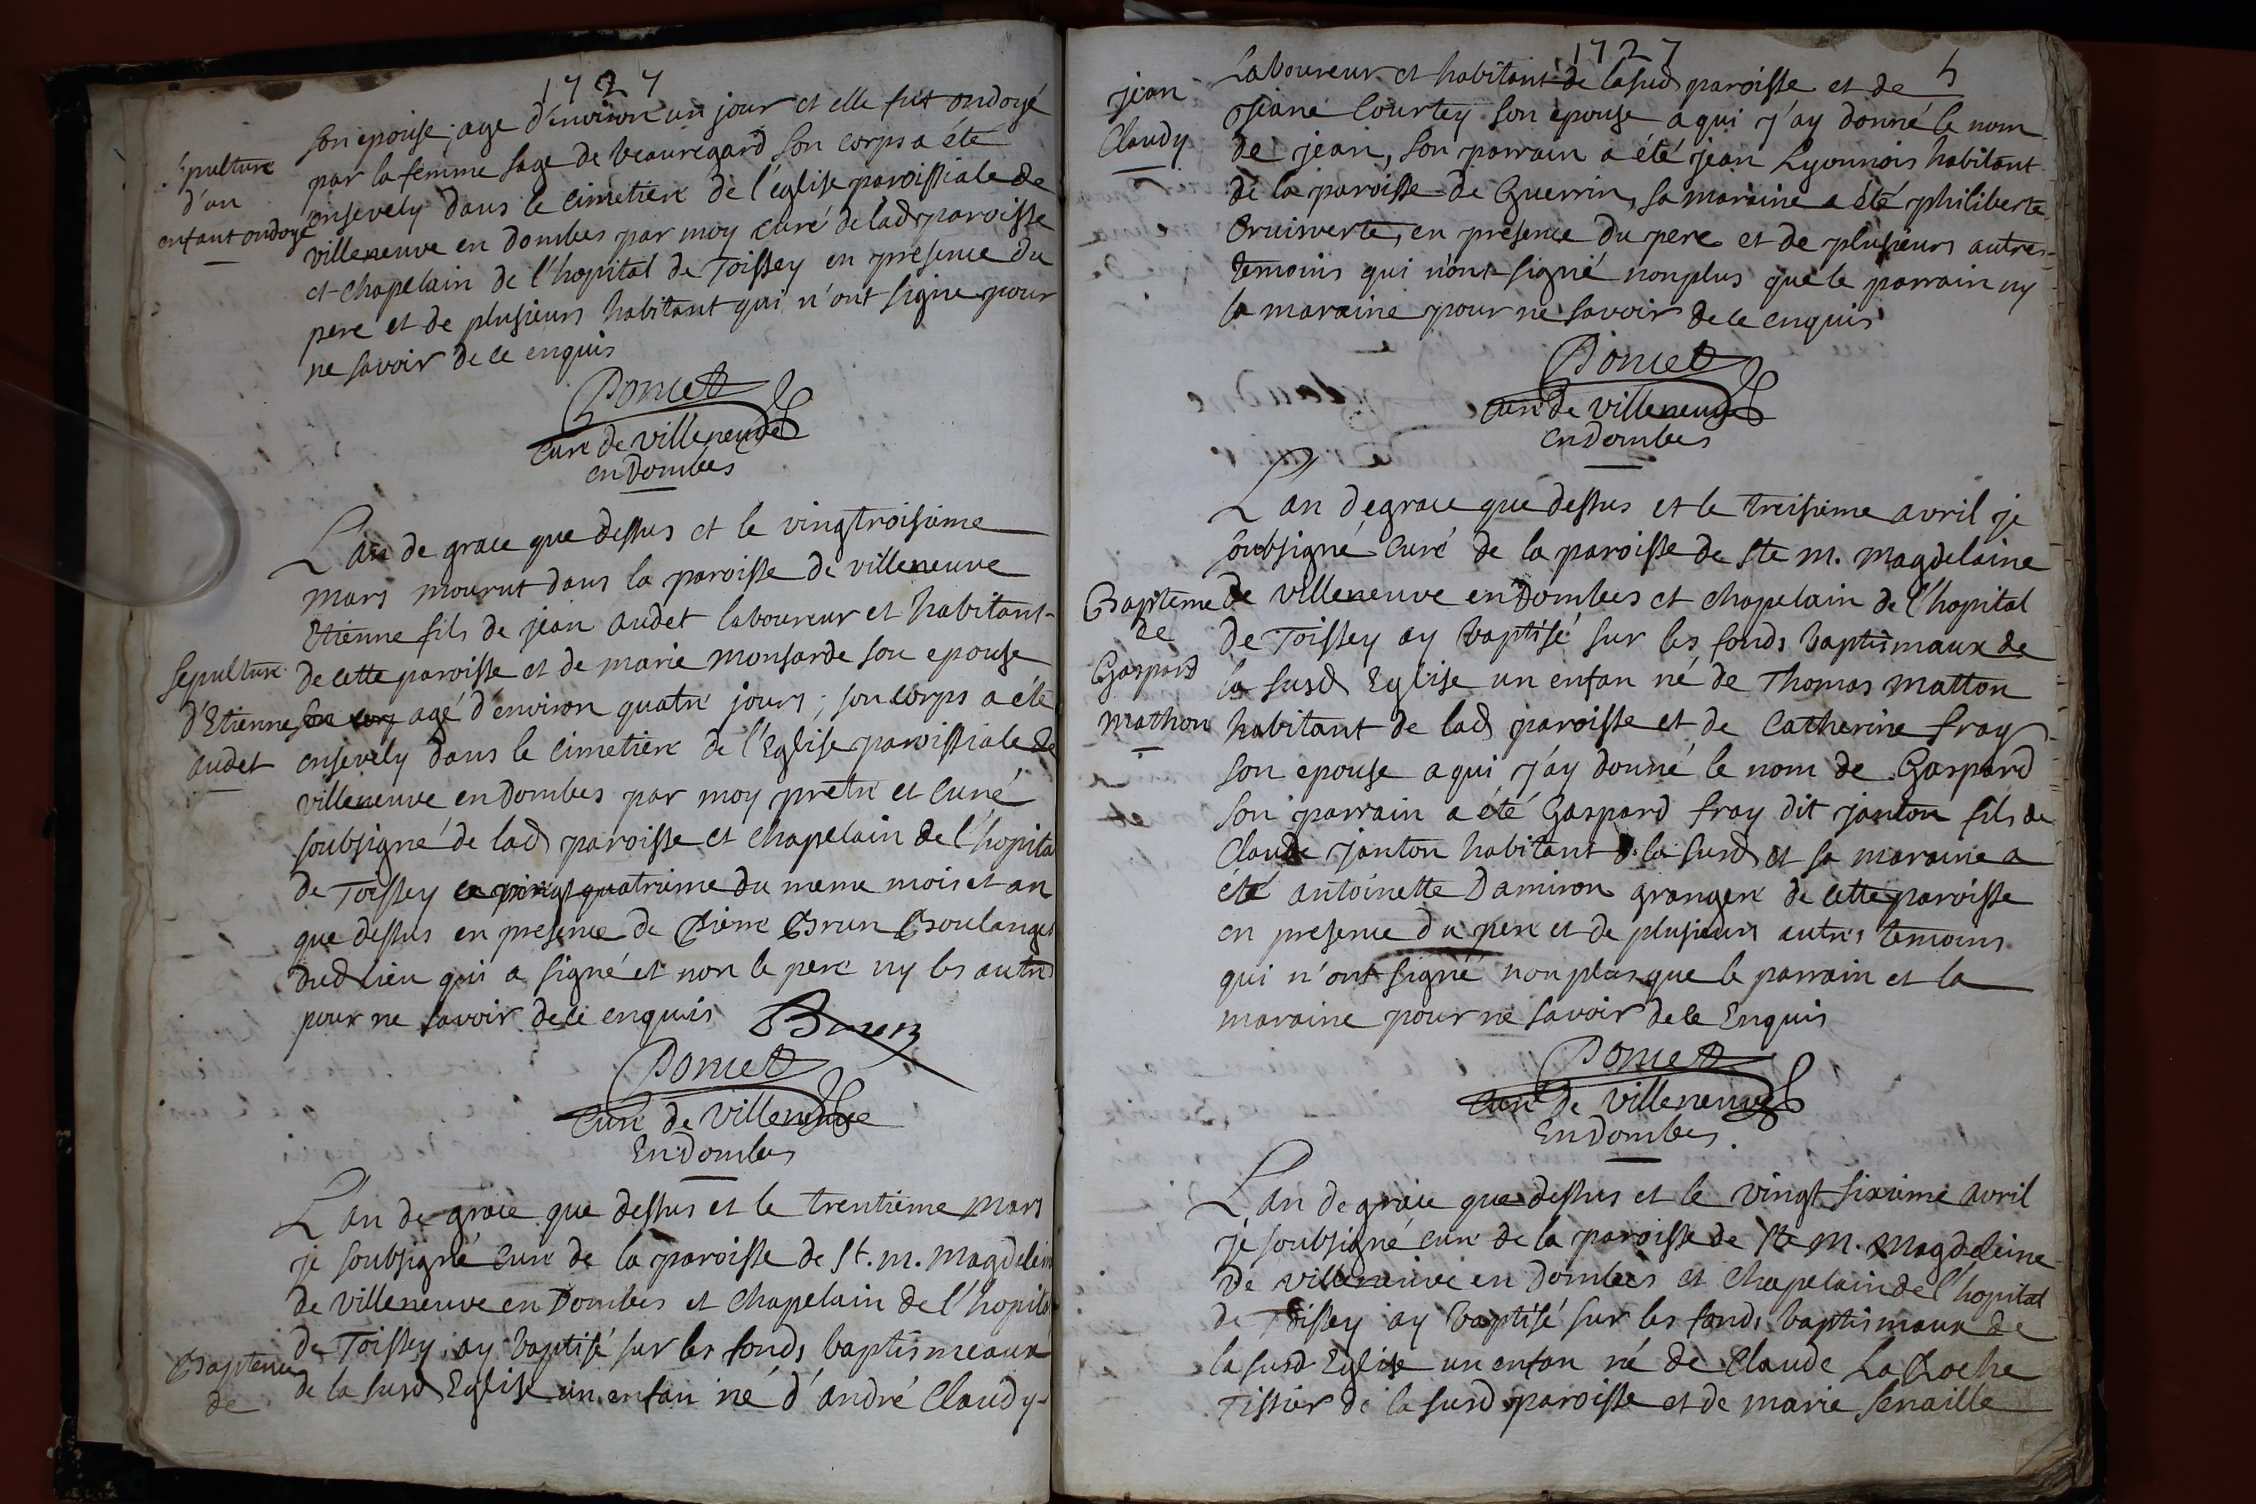 1727
son epouse; age d'environ un jour et elle fut ondoyé
Sepulture
d'un
enfant ondoyé
par la femme sage de beauregard son corps a été
ensevely dans le cimetiere de l'église paroissiale de
villeneuve en dombes par moy curé de lad paroisse
et chapelain de l'hopital de Toissey en presence du
pere et de plusieurs habitant qui n'ont signe pour
ne savoir de ce enquis
Poncet
curé de villeneuve
en Dombes
L'an de grace que dessus et le vingtroisieme
mars mourut dans la paroisse de villeneuve
Etienne fils de jean audet laboureur et habitant
Sepulture
d'Etienne
audet
de cette paroisse et de marie monsarde son epouse
agé d'environ quatre jours; son corps a été
ensevely dans le cimetiere de l'Eglise paroissiale de
villeneuve en dombes par moy pretre et curé
soubsigné de lad paroisse et chapelain de l'hopita
de Toissey le vingt quatrieme du meme mois et an
que dessus en presence de Pierre Brun Boulanger
dud lieu qui a signé et non le pere ny les autres
pour ne savoir de ce enquis Brun
Poncet
curé de villeneuve
En Dombes
L'an de grace que dessus et le trentieme mars
je soubsigné curé de la paroisse de St. m. magdelein
de villeneuve en Dombes et chapelain de l'hopital
de Toissey ay baptisé sur les fonds baptismeaux
Bapteme
de
de la susd Eglise un enfan né d'andré Claudy
1727
5
jean
Claudy
Laboureur et habitant de lasusd paroisse et de
Jeane Courtey son epouse a qui j'ay donné le nom
de jean, son parrain a été jean Lyonnois habitant
de la paroisse de Guerrin, sa maraine a été philiberte
Bruisverte, en presence du pere et de plusieurs autres
temoins qui n'ont signé non plus que le parrain ny
la maraine pour ne savoir de ce enquis
Poncet
curé de villeneuve
en Dombes
L'an de grace que dessus et le treisieme avril je
soubsigné curé de la paroisse de Ste m. magdelaine
Bapteme
de
Gaspard
mathon
de villeneuve en Dombes et chapelain de l'hopital
de Toissey ay baptisé sur les fonds baptismaux de
la susd Eglise un enfan né de Thomas matton
habitant de lad paroisse et de Catherine fray
son epouse a qui j'ay donné le nom de Gaspard
son parrain a été Gaspard fray dit janton fils de
Claude janton habitant d. la susd et sa maraine a
été antoinette Damiron grangere de cette paroisse
en presence du pere et de plusieurs autres temoins
qui n'ont signé non plus que le parrain et la
maraine pour ne savoir de ce Enquis
Poncet
curé de villeneuve
En Dombes.
L'an de grace que dessus et le vingt sixieme avril
je soubsigné curé de la paroisse de Ste M. Magdeleine
de villeneuve en Dombes et chapelain de l'hopital
de Toissey ay baptisé sur les fonds baptismaux de
la susd Eglise un enfan né de Claude La Roche
Tissier de la susd paroisse et de marie senaille